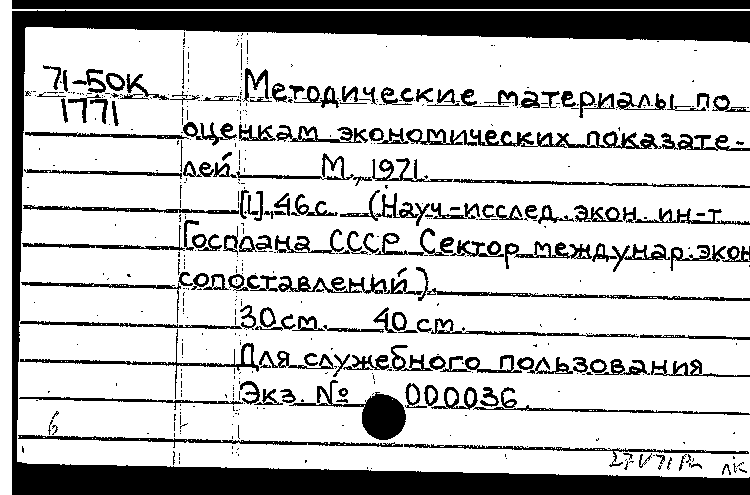 71-50К
1771
Методические материалы по
оценкам экономических показате-
лей. М., 1971.
[1], 46 с. (Науч.-исслед. экон. ин-т
Госплана СССР. Сектор междунар. экон
сопоставлений).
30 см. 40 см.
Для служебного пользования
Экз. № 000036.
6
27 V 71 лк